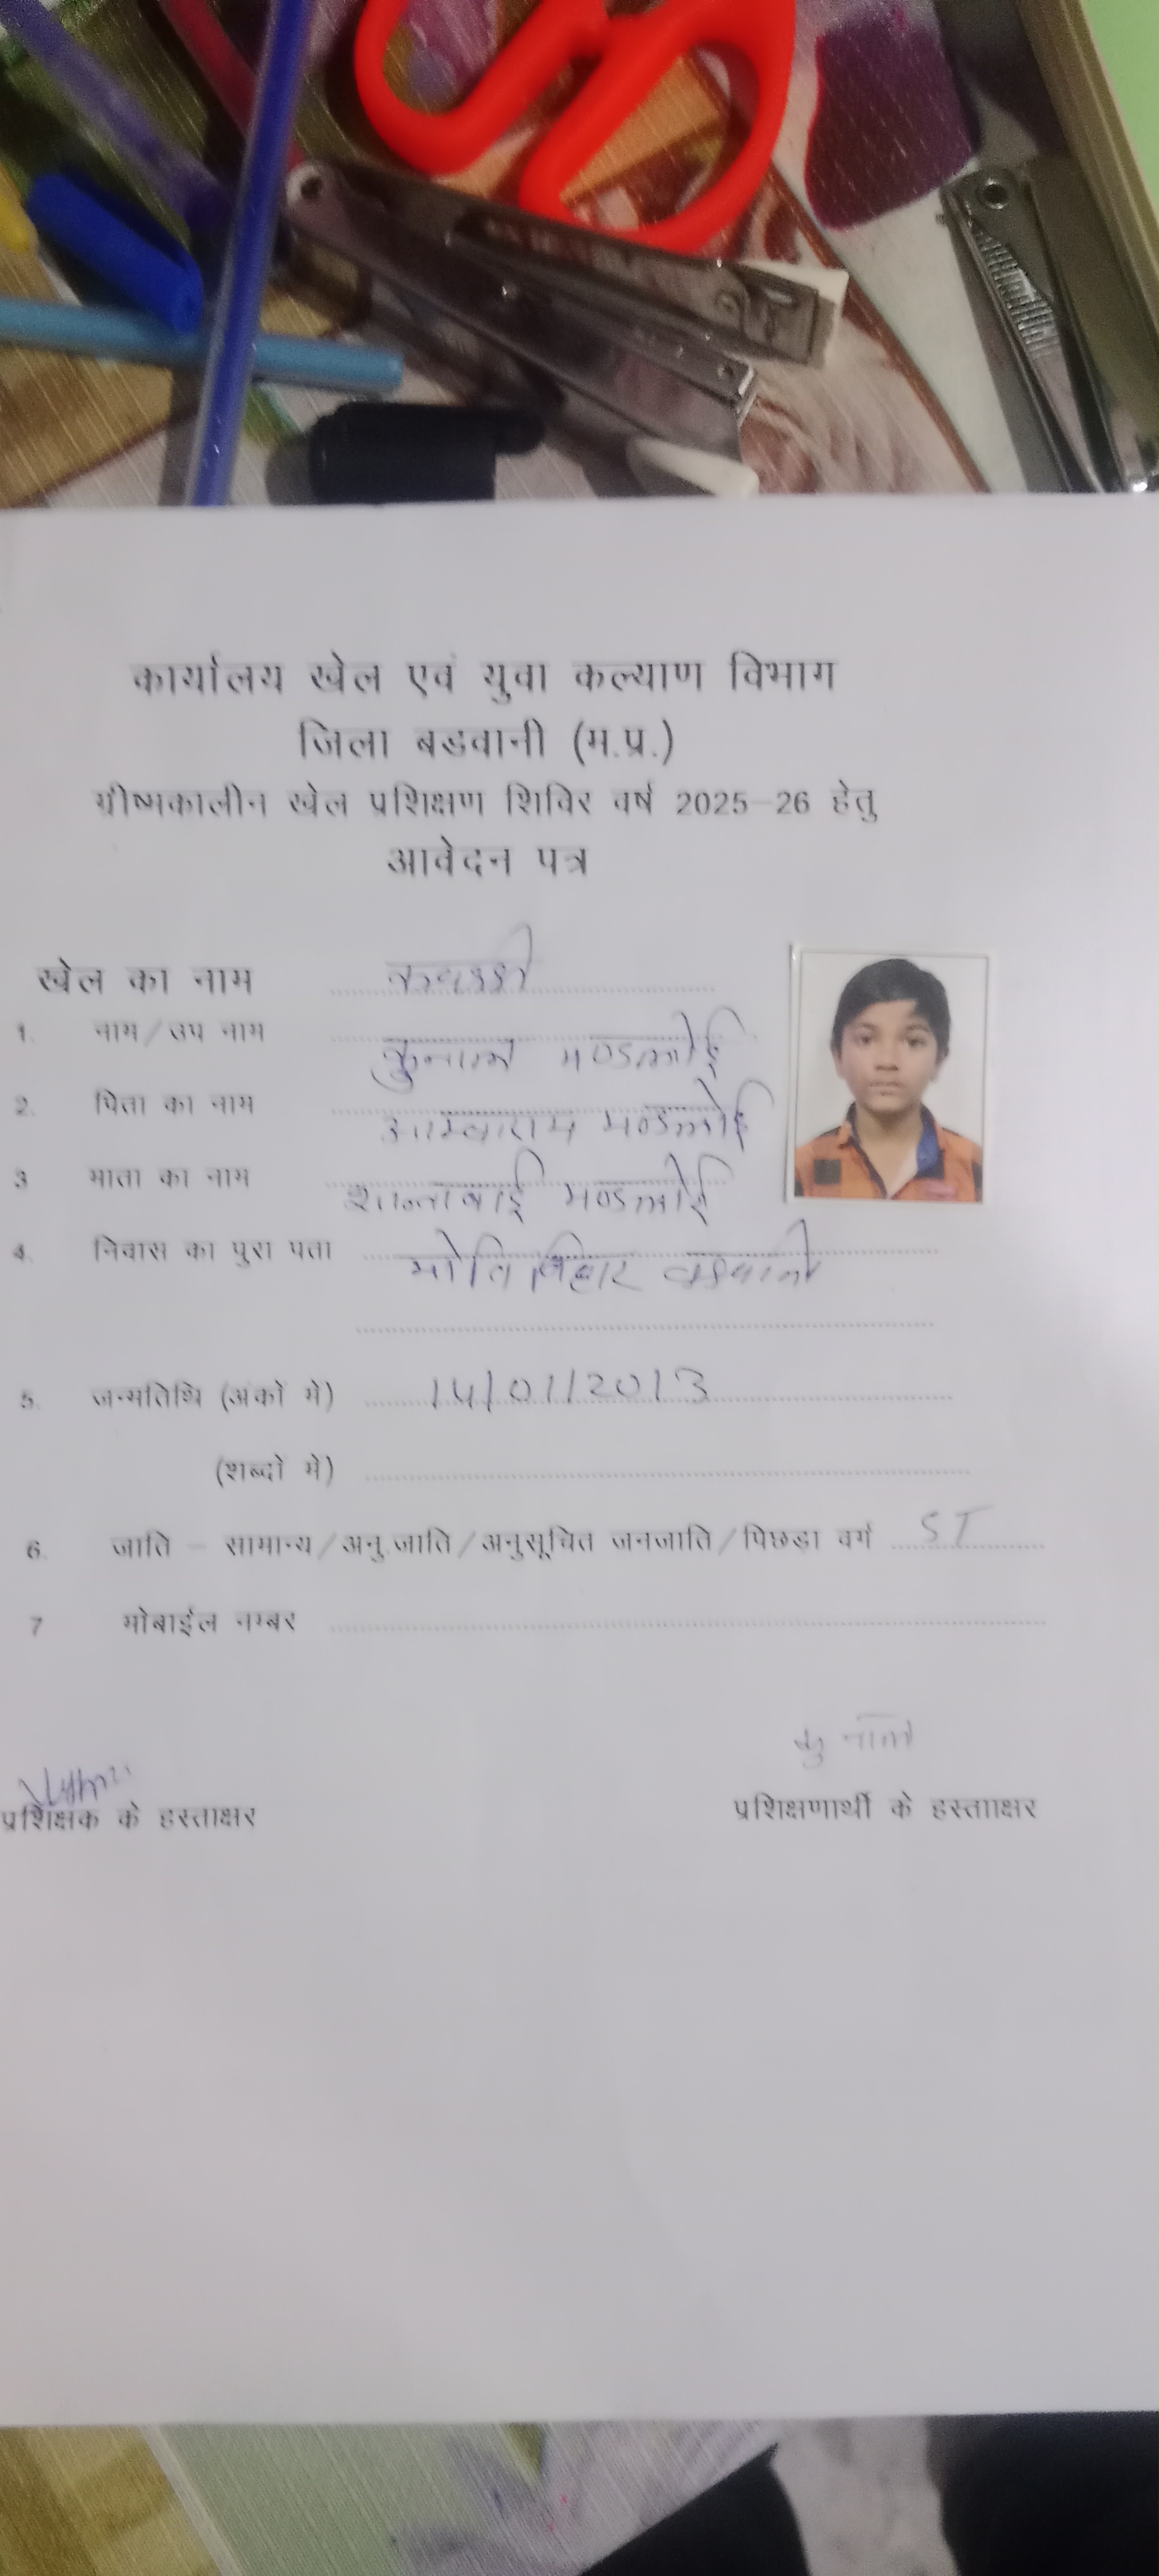 कार्यालय खेल एवं युवा कल्याण विभाग
जिला बडवानी (म.प्र.)
ग्रीष्मकालीन खेल प्रशिक्षण शिविर वर्ष 2025-26 हेतु
आवेदन पत्र
खेल का नाम कबड्डी
1. नाम/उप नाम कुनाल मण्डलोई
2. पिता का नाम आत्माराम मण्डलोई
3 माता का नाम शान्ताबाई मण्डलोई
4. निवास का पुरा पता मोति विहार बडवानी
5. जन्मतिथि (अंको में) 14/01/2013
(शब्दों में)
6. जाति - सामान्य/अनु.जाति/अनुसूचित जनजाति/पिछडा वर्ग ST
7 मोबाईल नम्बर
कुनाल
प्रशिक्षक के हस्ताक्षर प्रशिक्षणार्थी के हस्तााक्षर